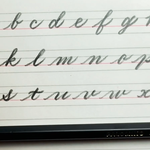 b c d e f g
k l m n o p
s t u v w x